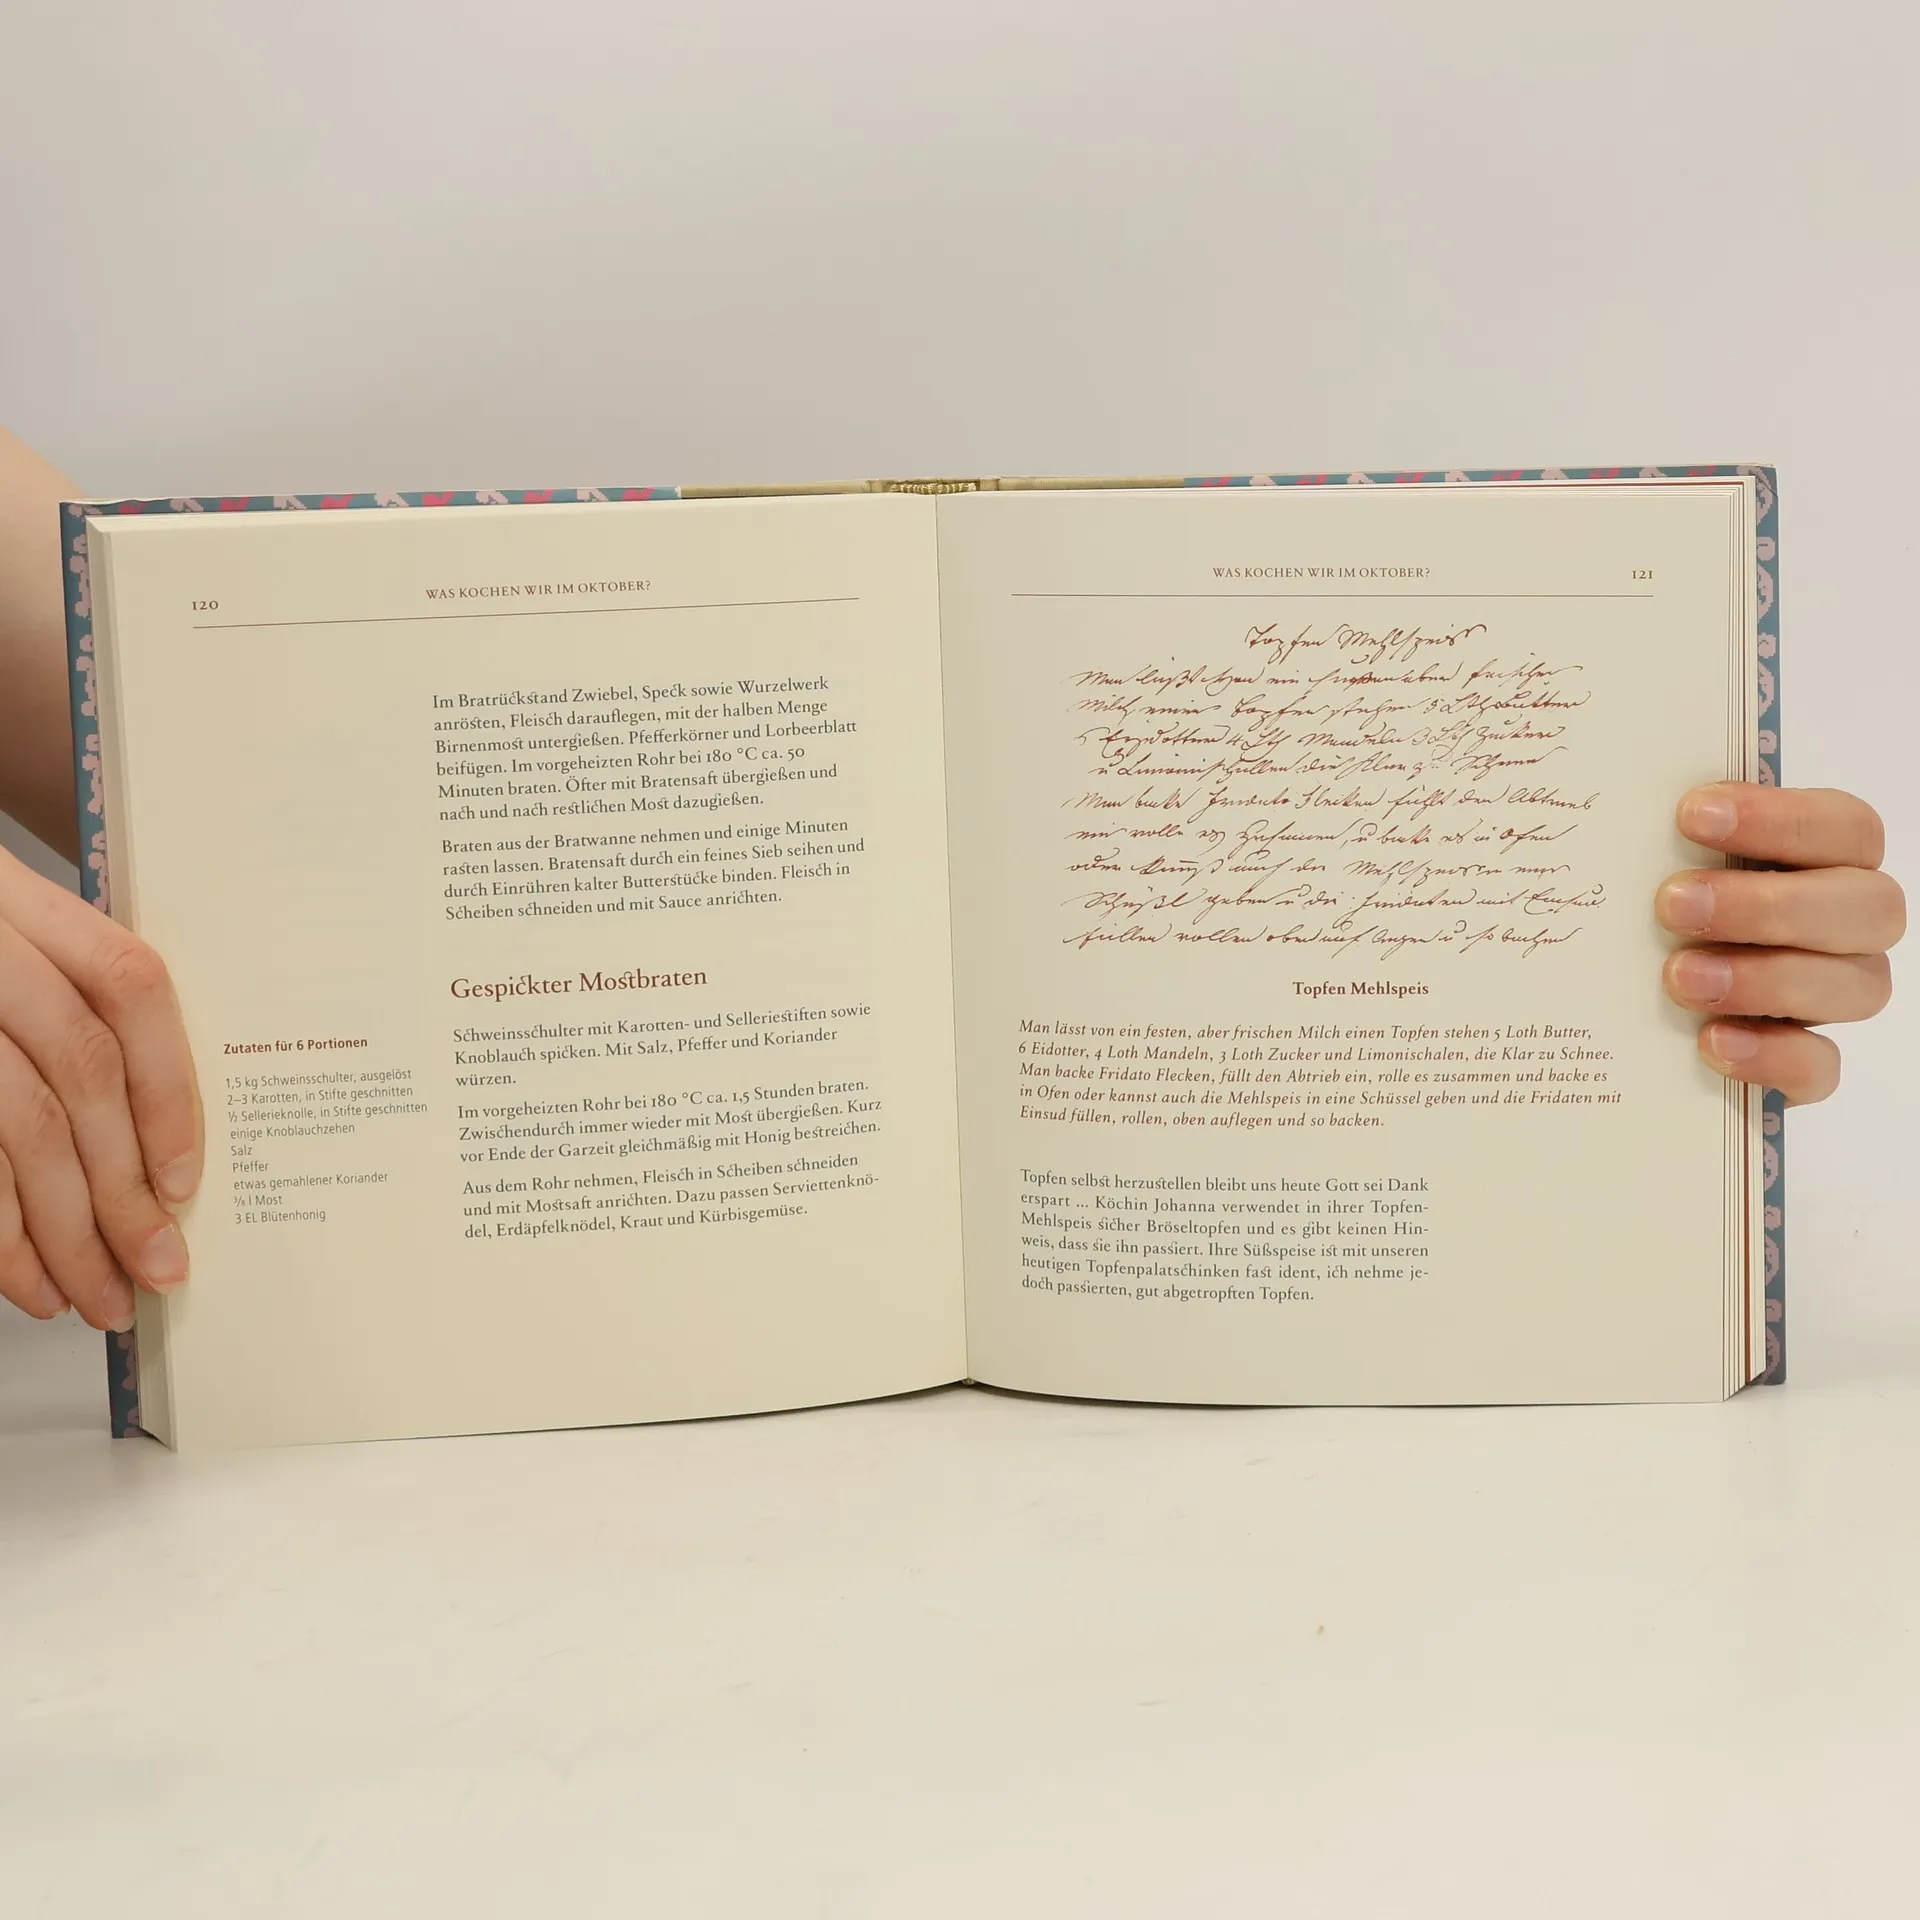 120
WAS KOCHEN WIR IM OKTOBER?
Im Bratrückstand Zwiebel, Speck sowie Wurzelwerk
anrösten, Fleisch darauflegen, mit der halben Menge
Birnenmost untergießen. Pfefferkörner und Lorbeerblatt
beifügen. Im vorgeheizten Rohr bei 180 °C ca. 50
Minuten braten. Öfter mit Bratensaft übergießen und
nach und nach restlichen Most dazugießen.
Braten aus der Bratwanne nehmen und einige Minuten
rasten lassen. Bratensaft durch ein feines Sieb seihen und
durch Einrühren kalter Butterstücke binden. Fleisch in
Scheiben schneiden und mit Sauce anrichten.
Gespickter Mostbraten
Zutaten für 6 Portionen
1,5 kg Schweinsschulter, ausgelöst
2–3 Karotten, in Stifte geschnitten
½ Sellerieknolle, in Stifte geschnitten
einige Knoblauchzehen
Salz
Pfeffer
etwas gemahlener Koriander
l Most
3 EL Blütenhonig
Schweinsschulter mit Karotten- und Selleriestiften sowie
Knoblauch spicken. Mit Salz, Pfeffer und Koriander
würzen.
Im vorgeheizten Rohr bei 180 °C ca. 1,5 Stunden braten.
Zwischendurch immer wieder mit Most übergießen. Kurz
vor Ende der Garzeit gleichmäßig mit Honig bestreichen.
Aus dem Rohr nehmen, Fleisch in Scheiben schneiden
und mit Mostsaft anrichten. Dazu passen Serviettenknö-
del, Erdäpfelknödel, Kraut und Kürbisgemüse.
WAS KOCHEN WIR IM OKTOBER?
121
Topfen Mehlspeis
Man frischen
Milch einen Topfen stehen 5 Lth Butter
Eidotter 4 Lth Mandeln 3 Lth Zucker
u Limonischallen die Klar zu Schnee
Man backe Fridato Flecken füllt den Abtrieb
ein rolle es zusammen, u backe es in Ofen
oder kannst auch die Mehlspeis in eine
Schüßl geben u die Fridaten mit Einsud
füllen rollen oben auf legen u so backen
Topfen Mehlspeis
Man lässt von ein festen, aber frischen Milch einen Topfen stehen 5 Loth Butter,
6 Eidotter, 4 Loth Mandeln, 3 Loth Zucker und Limonischalen, die Klar zu Schnee.
Man backe Fridato Flecken, füllt den Abtrieb ein, rolle es zusammen und backe es
in Ofen oder kannst auch die Mehlspeis in eine Schüssel geben und die Fridaten mit
Einsud füllen, rollen, oben auflegen und so backen.
Topfen selbst herzustellen bleibt uns heute Gott sei Dank
erspart ... Köchin Johanna verwendet in ihrer Topfen-
Mehlspeis sicher Bröseltopfen und es gibt keinen Hin-
weis, dass sie ihn passiert. Ihre Süßspeise ist mit unseren
heutigen Topfenpalatschinken fast ident, ich nehme je-
doch passierten, gut abgetropften Topfen.